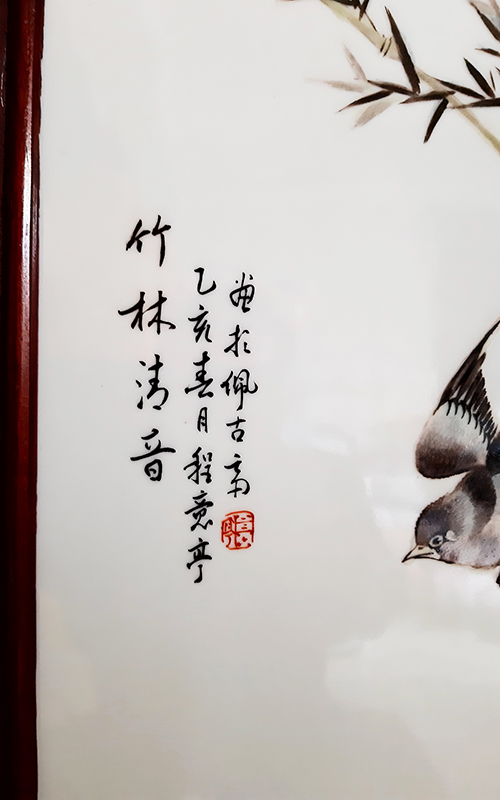 竹林清音
乙亥春月程意亭
畫於佩古齋